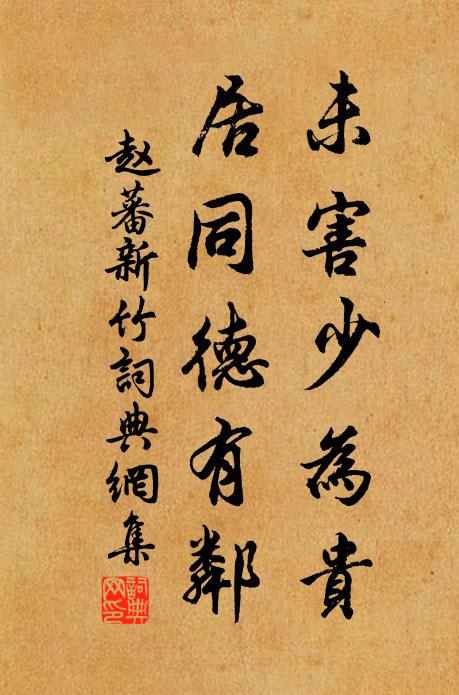 未害少為貴
居同德有鄰
赵蕃新竹詞典網集
詞典
网印